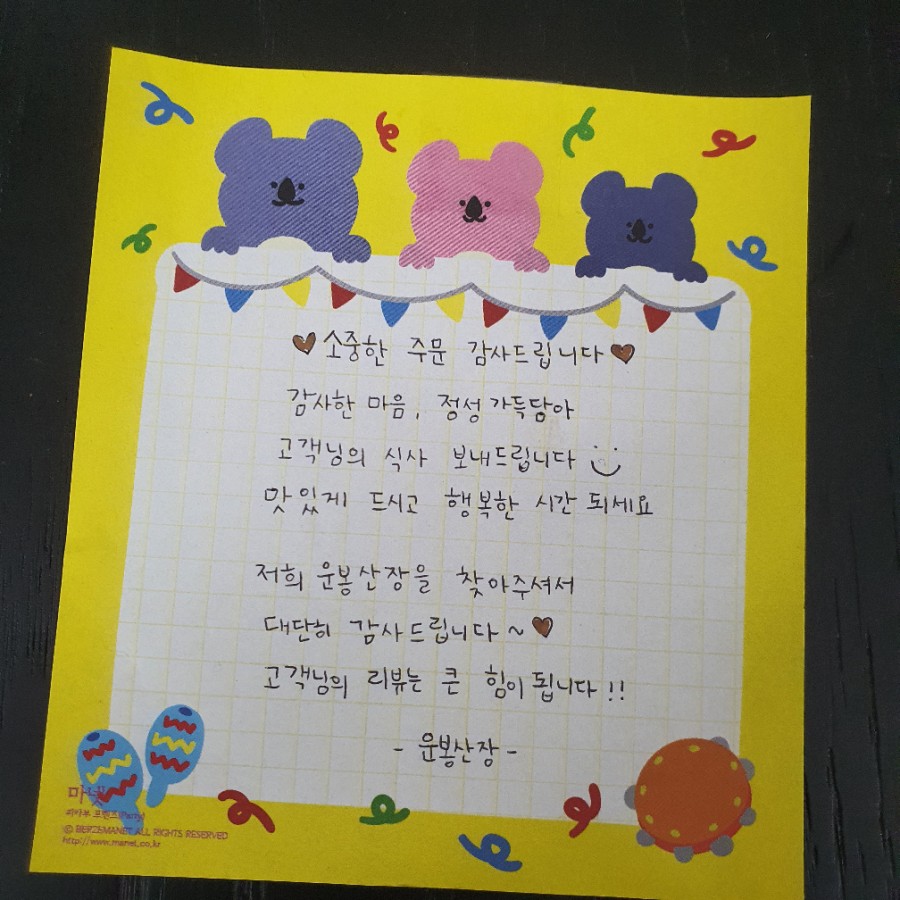 ♥소중한 주문 감사드립니다♥
감사한 마음, 정성가득담아
고객님의 식사 보내드립니다
맛있게 드시고 행복한 시간 되세요
저희 운봉산장을 찾아주셔서
대단히 감사드립니다~♥
고객님의 리뷰는 큰 힘이 됩니다!!
- 운봉산장 -
마넷
ALL RIGHTS RESERVED
http://www.manet.co.kr